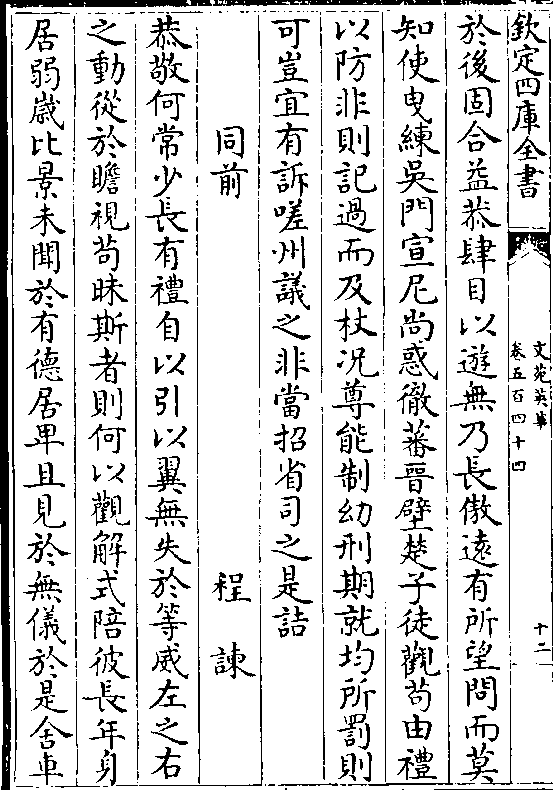 欽定四庫全書
文苑英華
卷五百四十四
十二
於後固合益恭肆目以遊無乃長傲遠有所望問而莫
知使曳練吳門宣尼尚惑徹蕃晉壁楚子徒觀苟由禮
以防非則記過而及杖况尊能制幼刑期就均所罰則
可豈宜有訴嗟州議之非當招省司之是詰
同前 程諫
恭敬何常少長有禮自以引以翼無失於等威左之右
之動從於瞻視苟昧斯者則何以觀解式陪彼長年身
居弱歲比景未聞於有德居卑且見於無儀於是舍車